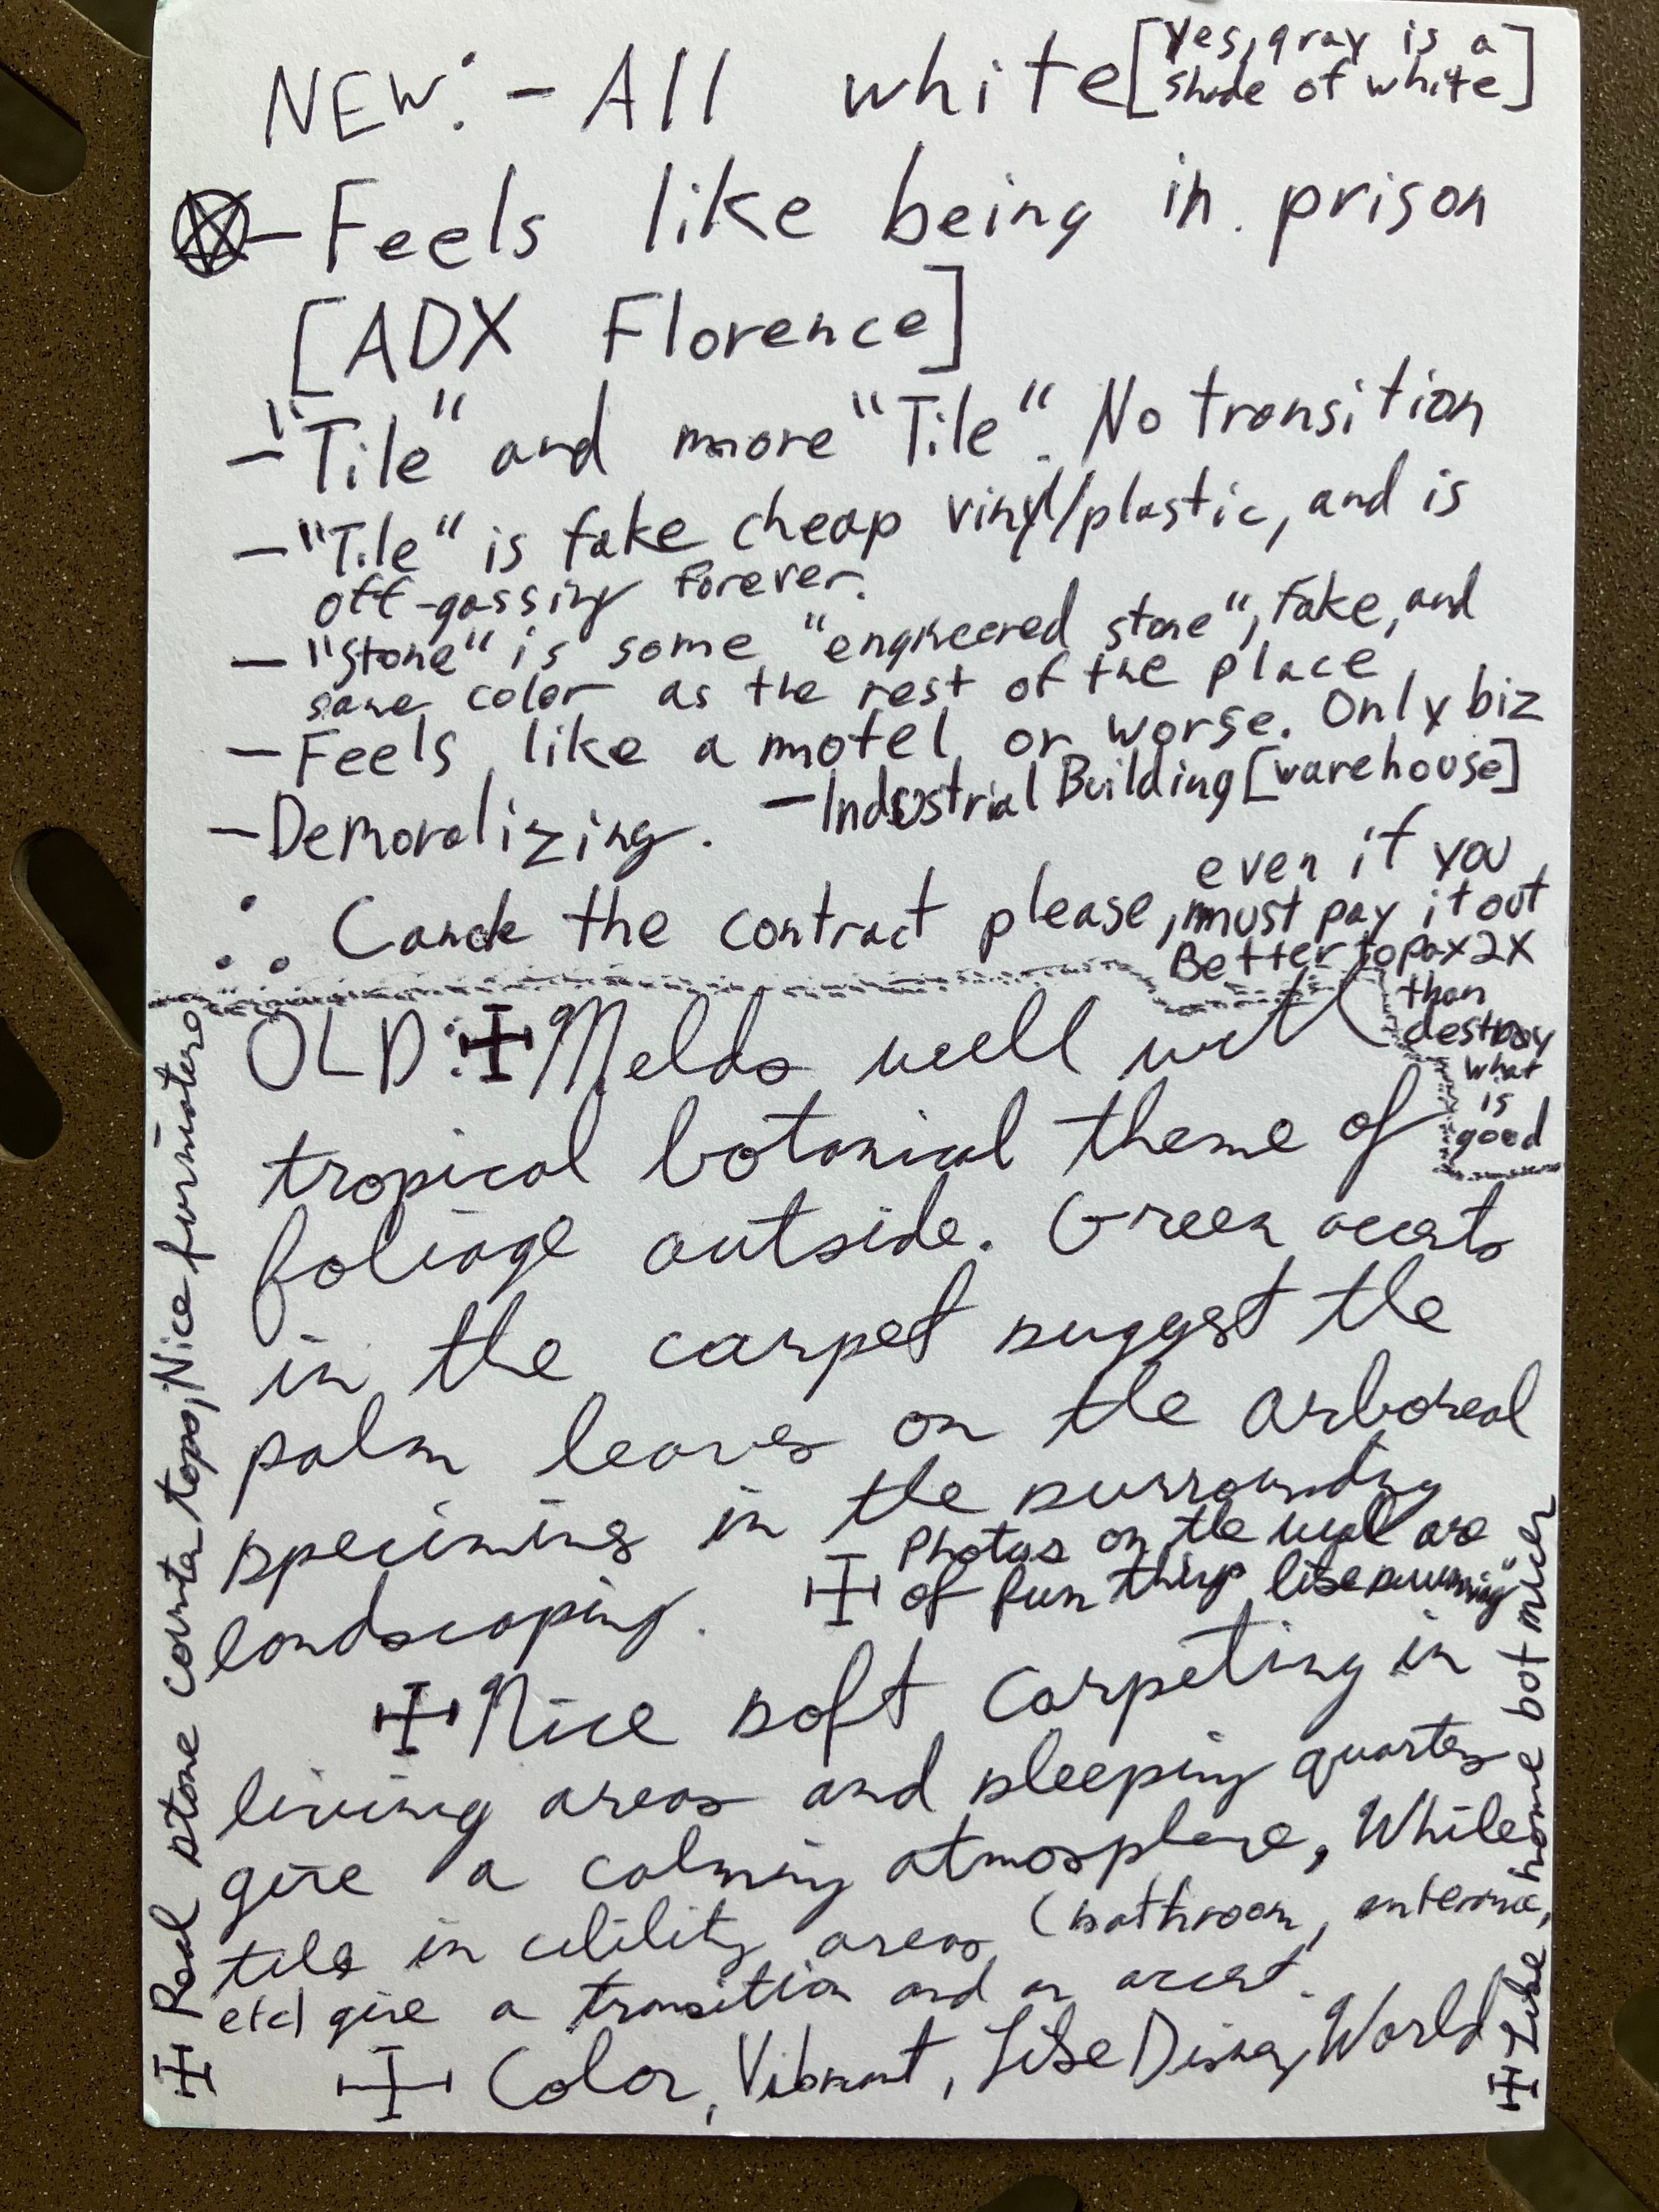 NEW: - All white [Yes, gray is a
shade of white]
- Feels like being in prison
[ADX Florence]
- "Tile" and more "Tile". No transition
- "Tile" is fake cheap vinyl/plastic, and is
off-gassing Forever.
- "Stone" is some "engineered stone", Fake, and
same color as the rest of the place
- Feels like a motel or worse. Only biz
- Demoralizing. - Industrial Building [warehouse]
∴ the contract please, even if you
must pay it out
Better to pay 2X
than
destroy
what
is
good
OLD: ✠ Melds well with
tropical botanical theme of
foliage outside. Green accents
in the carpet suggest the
palm leaves on the arboreal
specimins in the surrounding
landscaping. ✠ Photos on the wall are
of fun things like swimming
✠ Nice soft carpeting in
living areas and sleeping quarters
give a calming atmosphere, While
tile in utility areas (bathroom, enterance,
etc) give a transition and an accent.
✠ Color, Vibrant, Like Disney World
✠ Real stone counta tops, Nice furniature
✠ Like home but nicer